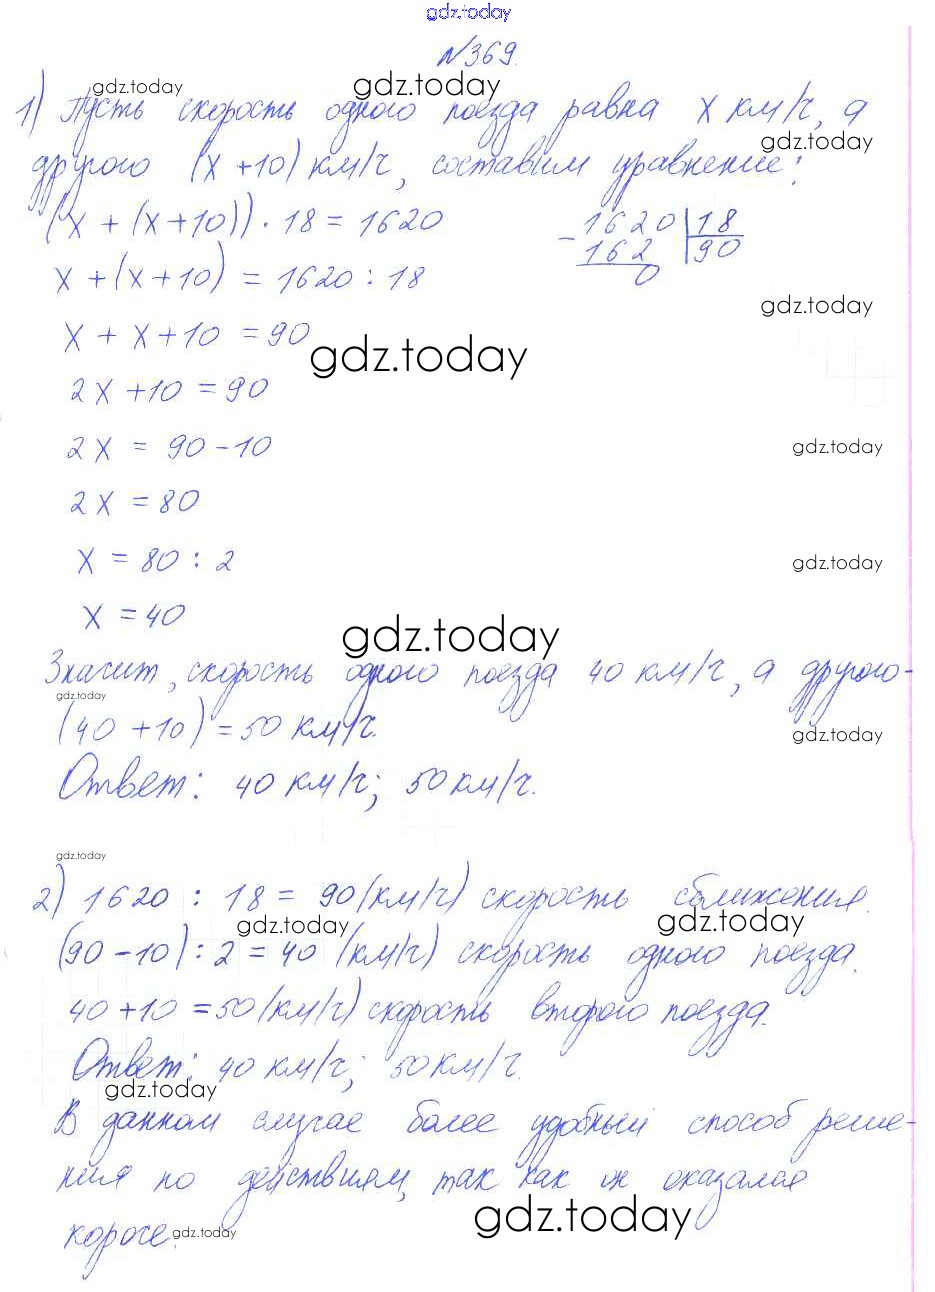 gdz.today
№369.
gdz.today gdz.today
1) Пусть скорость одного поезда равна x км/ч, а
gdz.today
другого (x+10) км/ч, составим уравнение:
(x + (x+10)) · 18 = 1620
- 1620 | 18
162 90
0
x + (x+10) = 1620 : 18
gdz.today
x + x + 10 = 90
gdz.today
2x + 10 = 90
2x = 90 - 10
gdz.today
2x = 80
x = 80 : 2
gdz.today
x = 40
gdz.today
Значит, скорость одного поезда 40 км/ч, а другого-
gdz.today
(40 + 10) = 50 км/ч.
gdz.today
Ответ: 40 км/ч; 50 км/ч.
gdz.today
2) 1620 : 18 = 90 (км/ч) скорость сближения.
gdz.today gdz.today
(90 - 10) : 2 = 40 (км/ч) скорость одного поезда.
40 + 10 = 50 (км/ч) скорость второго поезда.
Ответ: 40 км/ч; 50 км/ч.
gdz.today
В данном случае более удобный способ реше-
ния по действиям, так как он оказался
gdz.today
короче.
gdz.today